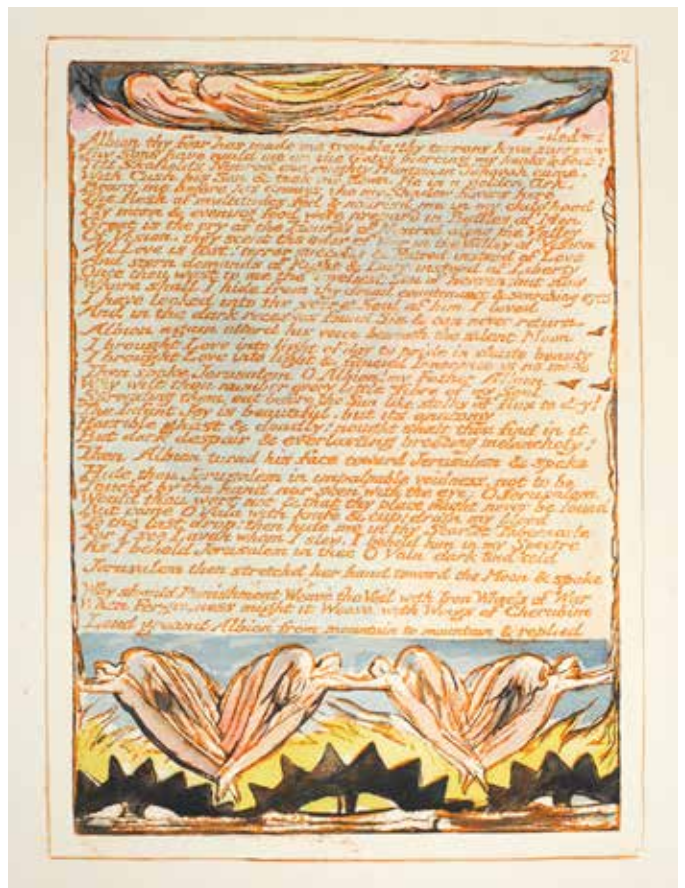 22
Albion thy fear has made me tremble; thy terrors have surrounded me
Thy Sons have naild me on the Gates piercing my hands & feet:
Till Skofields Nimrod the mighty Huntsman Jehovah came,
With Cush his Son & took me down. He in a golden Ark,
Bears me before his Armies tho my shadow hovers here
The flesh of multitudes fed & nourisd me in my childhood
My morn & evening food were prepard in Battles of Men
Great is the cry of the Hounds of Nimrod along the Valley
Of Vision, they scent the odor of War in the Valley of Vision.
All Love is lost! terror succeeds & Hatred instead of Love
And stern demands of Right & Duty instead of Liberty
Once thou wast to me the loveliest Son of heaven; but now
Where shall I hide from thy dread countenance & searching eyes
I have looked into the secret Soul of him I loved
And in the dark recesses found Sin & can never return.
Albion again utterd his voice beneath the silent Moon
I brought Love into light of day to pride in chaste beauty
I brought Love into light & fancied Innocence is no more
Then spoke Jerusalem O Albion! my Father Albion
Why wilt thou number every little fibre of my Soul
Spreading them out before the Sun like stalks of flax to dry?
The Infant Joy is beautiful, but its anatomy
Horrible ghast & deadly! nought shalt thou find in it
But dark despair & everlasting brooding melancholy!
Then Albion turnd his face toward Jerusalem & spoke
Hide thou Jerusalem in impalpable voidness, not to be
Touchd by the hand nor seen with the eye: O Jerusalem
Would thou wert not & that thy place might never be found
But come O Vala with knife & cup: drain my blood
To the last drop! then hide me in thy Scarlet Tabernacle
For I see Luvah whom I slew. I behold him in my Spectre
As I behold Jerusalem in thee O Vala dark and cold
Jerusalem then stretchd her hand toward the Moon & spoke
Why should Punishment Weave the Veil with Iron Wheels of War
When Forgiveness might it Weave with Wings of Cherubim
Loud groand Albion from mountain to mountain & replied